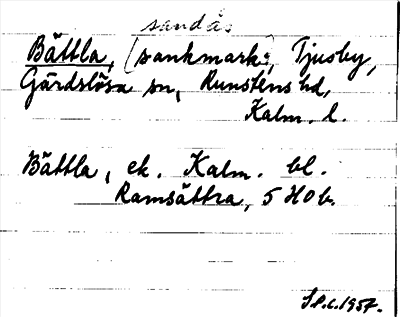 sandås
Bättla, (sankmark), Tjusby,
Gärdslösa sn, Runstens hd,
Kalm. l.
Bättla, ek. Kalm. bl.
Ramsättra, 5 H0 b.
1957.